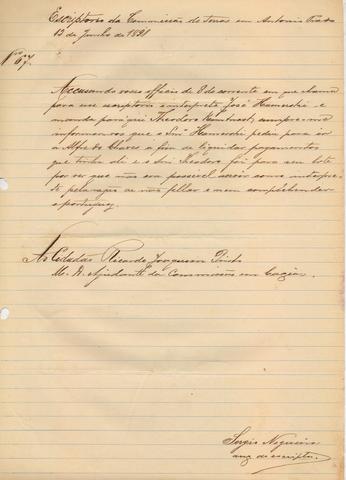 Escriptorio da Commissão de terras em Antonio Prado
12 de Junho de 1891
Nº 67.
Accusando vosso officio de 8 do corrente em que chama
para esse escriptorio o interprete José e
manda para aqui Theodoro cumpre-me
informar-vos que o Snr. pedio para ir
a Alfe. Chaves a fim de liquidar pagamentos
que tenha ali e o Snr. Theodoro foi para seu lote
por ver que não era possivel servir como interpre-
te pela razão de não fallar e nem comprehender
o portuguez.
Ao Cidadão Ricardo Joaquim Pinto
M. D. Ajudante da Commissão em Caxias.
Sergio Nogueira
aux. de escripta.